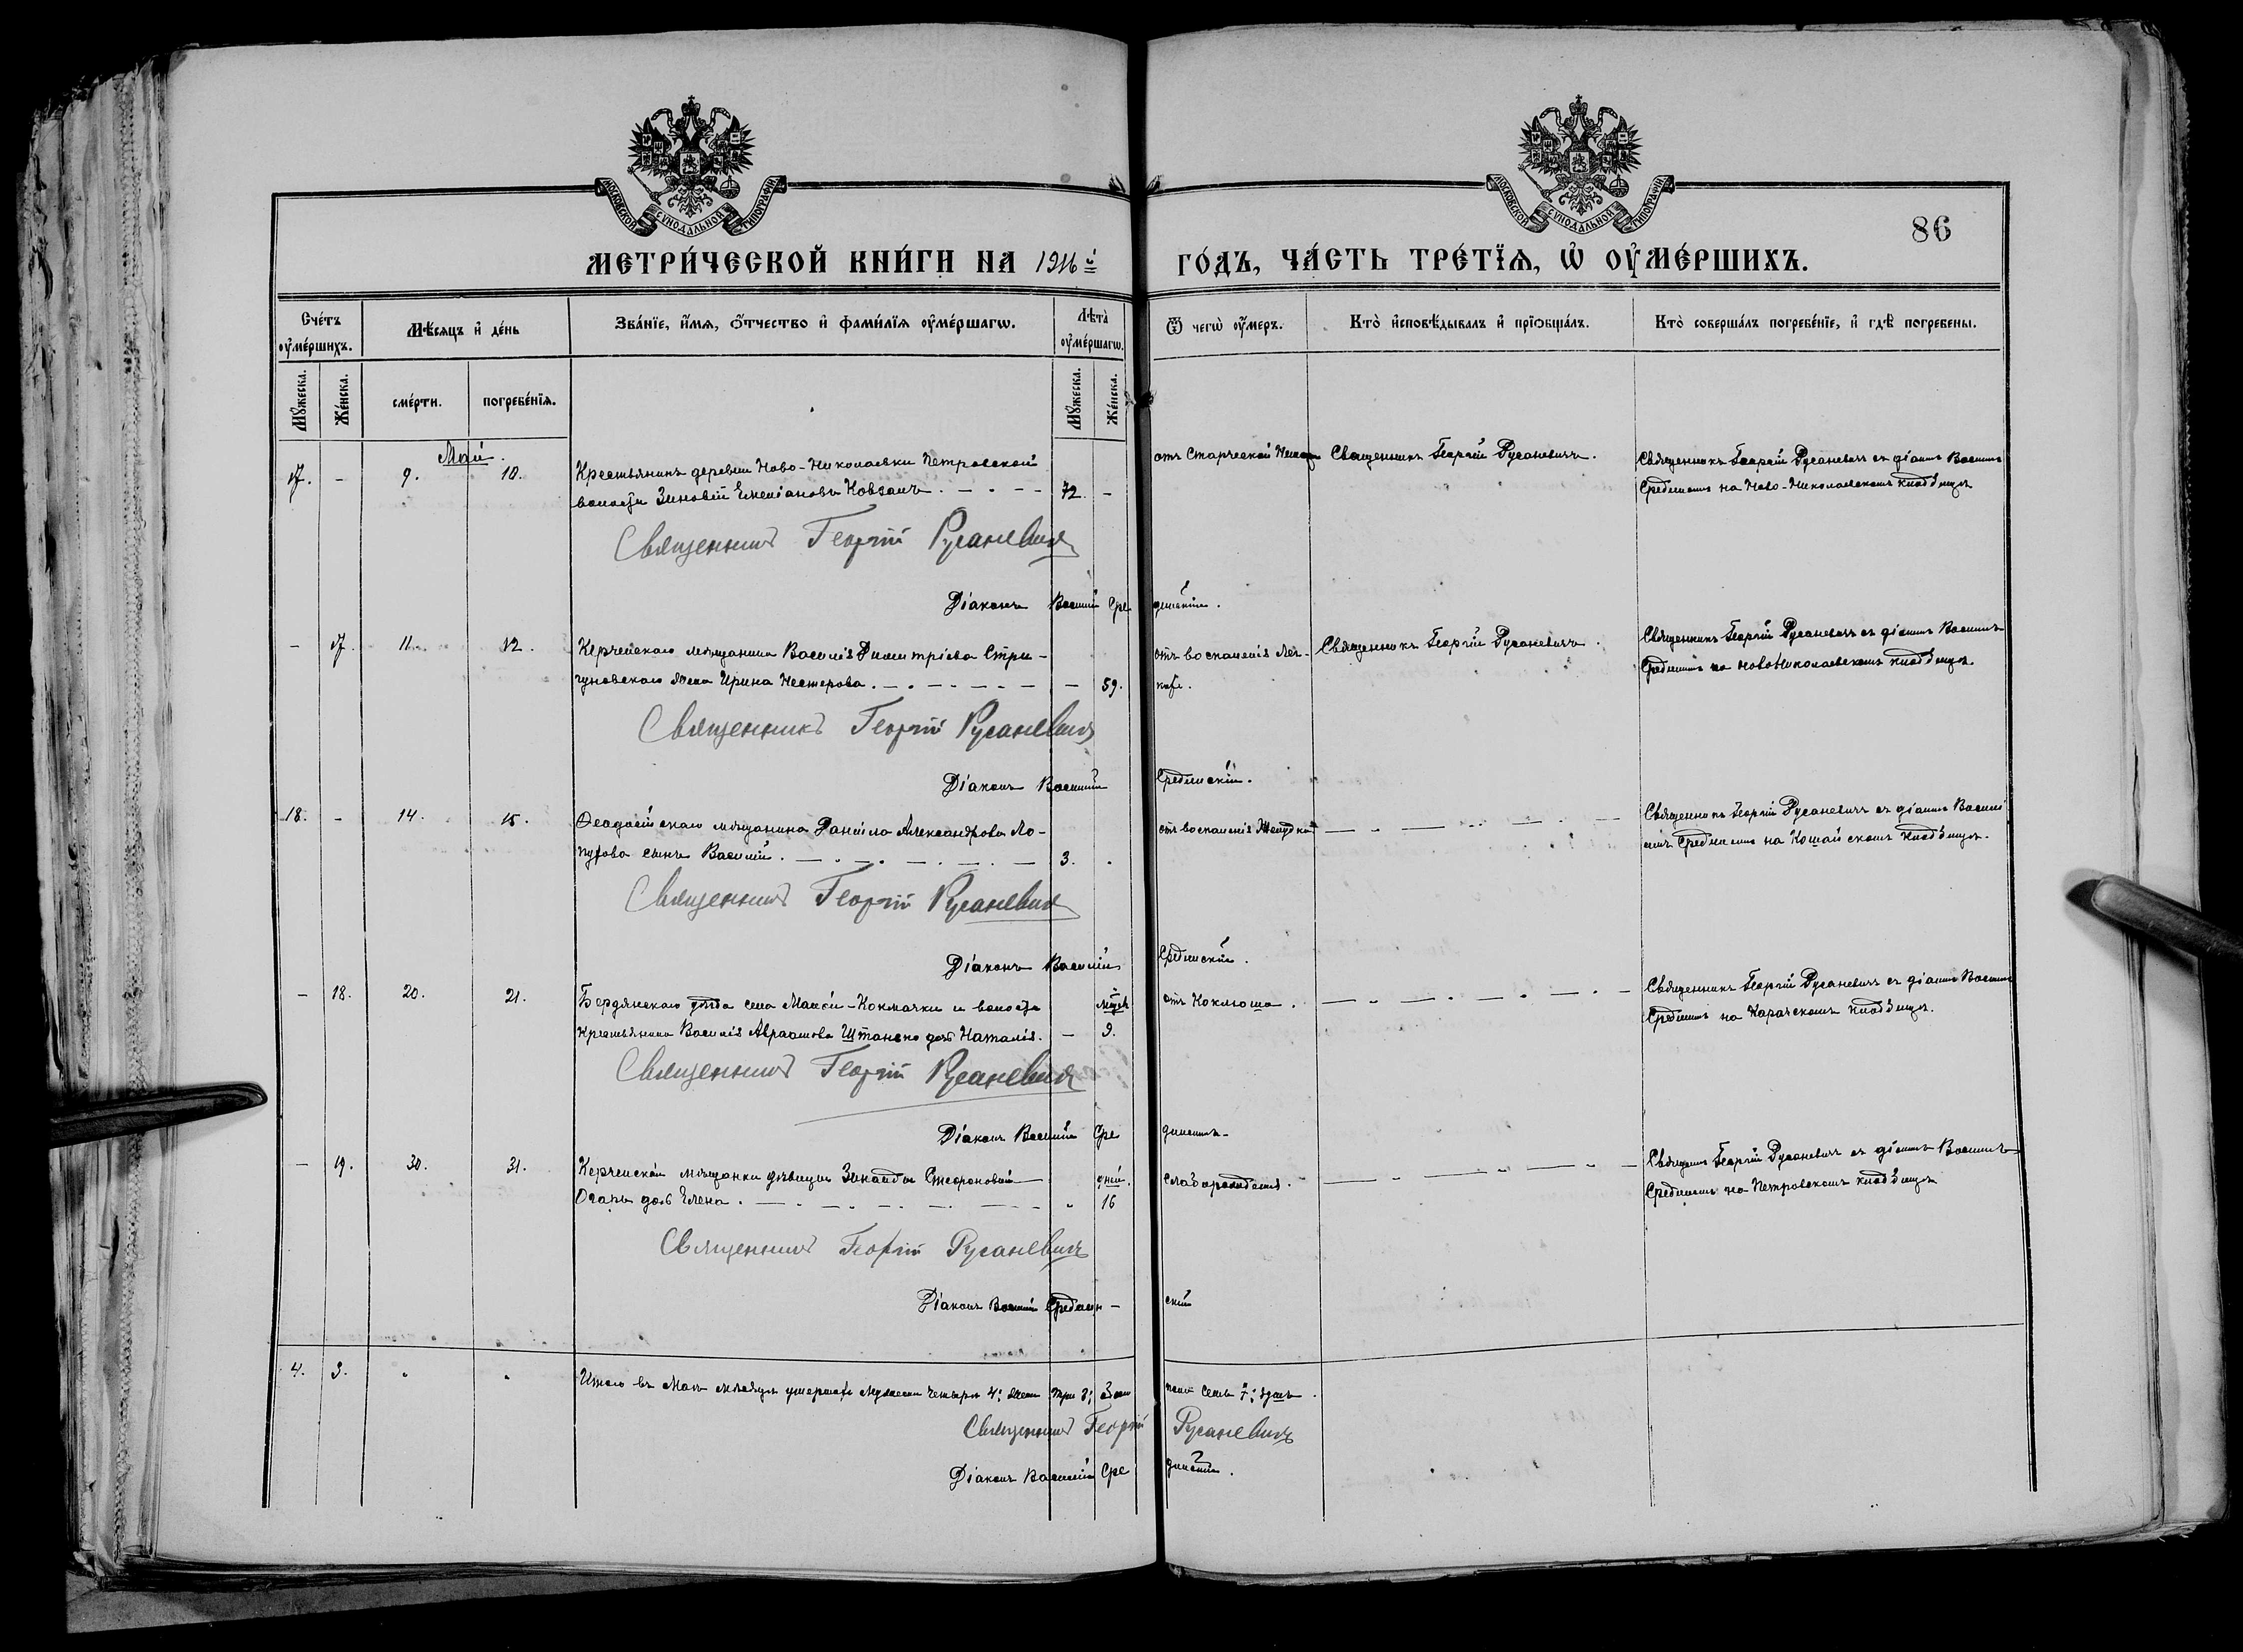 МОСКОВСКОЙ СУНОДАЛЬНОЙ ТИПОГРАФІИ
МОСКОВСКОЙ СУНОДАЛЬНОЙ ТИПОГРАФІИ
86
МЕТРИ́ЧЕСКОЙ КНИ́ГИ НА 1916й ГО́ДЪ, ЧА́СТЬ ТРЕ́ТЇѦ, Ѽ ОУ҆МЕ́РШИХЪ.
Сче́тъ оу҆ме́ршихъ.
Мѣ́сяцъ и҆ де́нь
Зва́нїе, и҆́мѧ, ѻ҆́тчество и҆ фами́лїѧ оу҆ме́ршагѡ.
Лѣта̀ оу҆ме́ршагѡ.
Ѿ чегѡ̀ оу҆́меръ.
Кто̀ и҆сповѣ́дывалъ и҆ прїѻбща́лъ.
Кто̀ соверша́лъ погребе́нїе, и҆ гдѣ̀ погребены.
Мꙋ́жеска.
Же́нска.
сме́рти.
погребе́нїѧ.
Мꙋ́жеска.
Же́нска.
Май.
17. - 9. 10. Крестьянинъ деревни Ново-Николаевки Петровской
волости Зиновій Емеліановъ Ковзанъ. 72. -
отъ Старческой Священникъ Георгій Русаневичъ.
Священникъ Георгій Русаневичъ съ діакономъ Василіемъ
на Ново-Николаевскомъ кладбищѣ
Священникъ Георгій Русаневичъ
Діаконъ Василій Сре
- 17. 11. 12. Керченскаго мѣщанина Василія Димитріева Стри-
гуновскаго жена Ирина Нестерова. - 59.
отъ воспаленія лег-
кихъ.
Священникъ Георгій Русаневичъ.
Священникъ Георгій Русаневичъ съ діакономъ Василіемъ
на Новониколаевскомъ кладбищѣ
Священникъ Георгій Русаневичъ
Діаконъ Василій
18. - 14. 15. Ѳеодосійскаго мѣщанина Даніила Александрова Ло-
пухова сынъ Василій. 3.
отъ воспаленія желудка
Священникъ Георгій Русаневичъ съ діакономъ Василі-
емъ на кладбищѣ.
Священникъ Георгій Русаневичъ
Діаконъ Василій
- 18. 20. 21. Бердянскаго уѣзда села Малой-Токмачки и волости мѣсяц.
крестьянина Василія Авраамова Штанько дочь Наталія. - 9.
отъ Коклюша.
Священникъ Георгій Русаневичъ съ діакономъ Василіемъ
на Карачскомъ кладбищѣ.
Священникъ Георгій Русаневичъ
Діаконъ Василій Сре
- 19. 30. 31. Керченской мѣщанки дѣвицы Зинаиды Стефановой дней.
дочь Елена. 16
Слаборожденія.
Священникъ Георгій Русаневичъ съ діакономъ Василіемъ
на Петровскомъ кладбищѣ
Священникъ Георгій Русаневичъ
Діаконъ Василій
скій
4. 3. Итого въ Маѣ мѣсяцѣ умершихъ мужеска четыре 4; женска три 3; а семь 7; душъ.
Священникъ Георгій Русаневичъ
Діаконъ Василій Сре